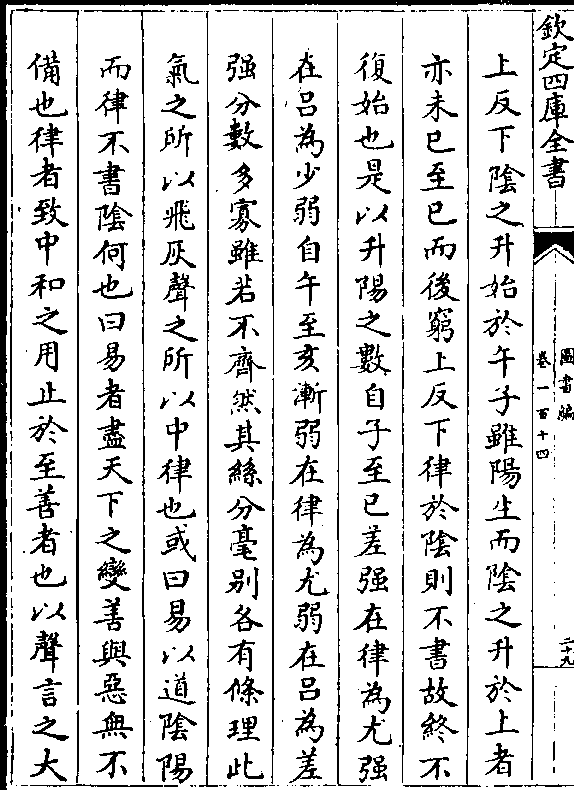 欽定四庫全書
圖書編
卷一百十四
二十九
上反下陰之升始於午子雖陽生而陰之升於上者
亦未已至已而後窮上反下律於陰則不書故終不
復始也是以升陽之數自子至已差强在律為尤强
在吕為少弱自午至亥漸弱在律為尤弱在吕為差
强分數多寡雖若不齊然其絲分毫别各有條理此
氣之所以飛灰聲之所以中律也或曰易以道陰陽
而律不書陰何也曰易者盡天下之變善與惡無不
備也律者致中和之用止於至善者也以聲言之大